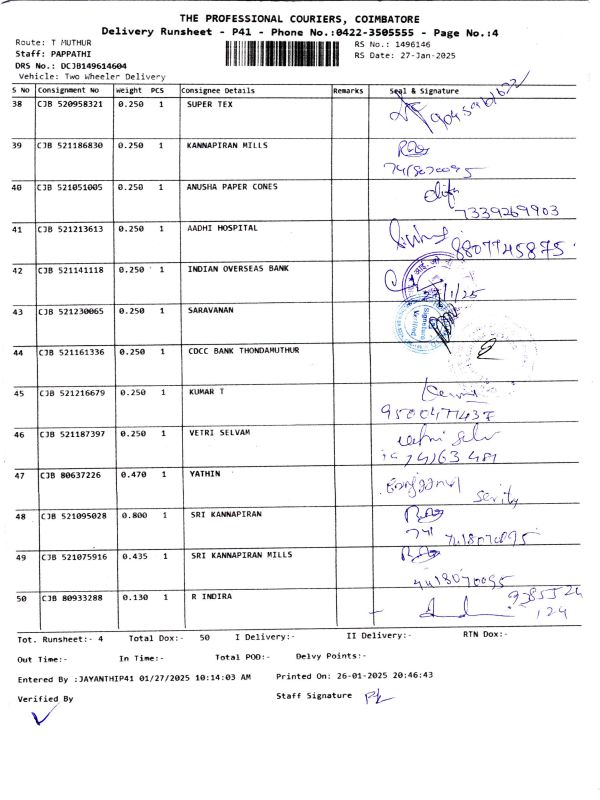 THE PROFESSIONAL COURIERS, COIMBATORE
Delivery Runsheet - P41 - Phone No.:0422-3505555 - Page No.:4
Route: T MUTHUR RS No.: 1496146
Staff: PAPPATHI RS Date: 27-Jan-2025
DRS No.: DCJB149614604
Vehicle: Two Wheeler Delivery
S No Consignment No Weight PCS Consignee Details Remarks Seal & Signature
38 CJB 520958321 0.250 1 SUPER TEX
39 CJB 521186830 0.250 1 KANNAPIRAN MILLS
40 CJB 521051005 0.250 1 ANUSHA PAPER CONES
7339269903
41 CJB 521213613 0.250 1 AADHI HOSPITAL
8807745875
42 CJB 521141118 0.250 1 INDIAN OVERSEAS BANK
43 CJB 521230065 0.250 1 SARAVANAN
44 CJB 521161336 0.250 1 CDCC BANK THONDAMUTHUR
45 CJB 521216679 0.250 1 KUMAR T
9500477437
46 CJB 521187397 0.250 1 VETRI SELVAM
47 CJB 80637226 0.470 1 YATHIN
48 CJB 521095028 0.800 1 SRI KANNAPIRAN
49 CJB 521075916 0.435 1 SRI KANNAPIRAN MILLS
50 CJB 80933288 0.130 1 R INDIRA
Tot. Runsheet:- 4 Total Dox:- 50 I Delivery:- II Delivery:- RTN Dox:-
Out Time:- In Time:- Total POD:- Delvy Points:-
Entered By :JAYANTHIP41 01/27/2025 10:14:03 AM Printed On: 26-01-2025 20:46:43
Verified By Staff Signature